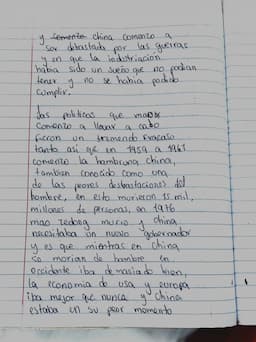 y comento china comenzo a
ser debastada por las guerras
y en que la industriacion
habia sido un sueño que no podian
tener y no se habia podido
cumplir.
Las politicas que mao
comenzo a llevar a cabo
fueron un tremendo fracaso
tanto asi que en 1959 a 1961
comenzo la hambruna china,
tambian conocido como una
de las peores desbastaciones del
hombre, en esto murieron 15 mil,
millones de personas, en 1976
mao zedong murio y china
necesitaba un nuevo gobernador
y es que mientras en china
se morian de hambre en
occidente iba demasiado bien,
la economia de usa y europa
iba mejor que nunca y china
estaba en su peor momento